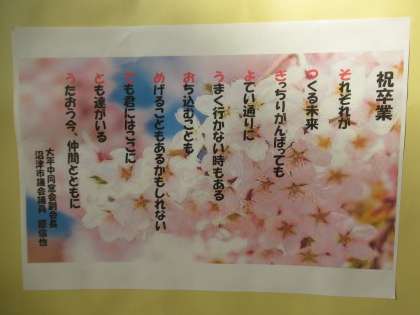 祝卒業
それぞれが
つくる未来
きっちりがんばっても
よてい通りに
うまく行かない時もある
おち込むことも
めげることもあるかもしれない
でも君にはここに
とも達がいる
うたおう今、仲間とともに
大平中同窓会副会長
沼津市議会議員